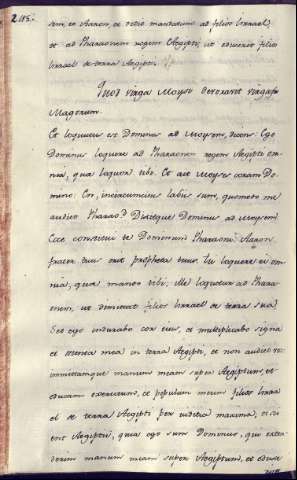 2115.
sem, et Aaron, et dedit mandatum ad filios Israel,
et ad Pharaonem regem Aegypti, ut educerent filios
Israel de terra Aegypti.
Quod virga Moysi devoravit virgas
Magorum.
Et loquutus est Dominus ad Moysen, dicens: Ego
Dominus loquere ad Pharaonem regem Aegypti om
nia, quae loquor tibi. Et ait Moyses coram Do
mino: En, incircumcisus labiis sum, quomodo me
audiet Pharao? Dixitque Dominus ad Moysem:
Ecce constitui te Deum Pharaonis: Aaron
frater tuus erit propheta tuus. tu loquere ei om
nia, quae mando tibi, ille loquetur ad Phara
onem, ut dimittat filios Israel de terra sua.
Sed ego indurabo cor eius, et multiplicabo signa
et ostenta mea in terra Aegypti, et non audiet vos
immittamque manum meam super Aegyptum, et
educam exercitum, et populum meum filios Isra
el de terra Aegypti per iudicia maxima, et sci
ent Aegyptii, quia ego sum Dominus, qui exten
derim manum meam super Aegyptum, et eduxe